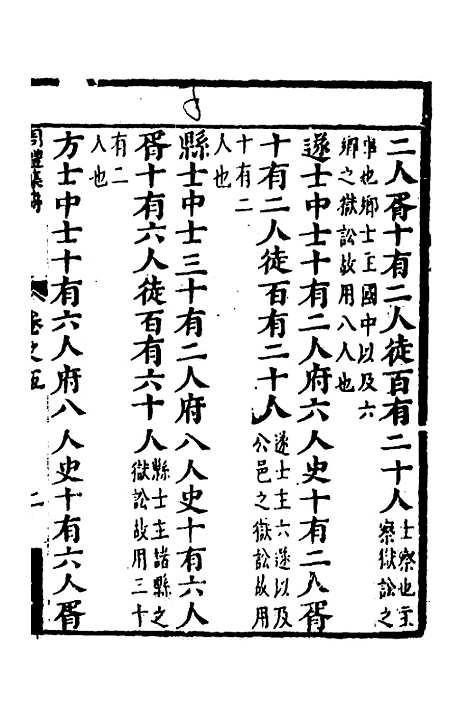 二人胥十有二人徒百有二十人士察也主察獄訟之
事也鄉士主國中以及六鄉之獄訟故用八人也
遂士中士十有二人府六人史十有二人胥
十有二人徒百有二十人遂士主六遂以及公邑之獄訟故用
十有二人也
縣士中士三十有二人府八人史十有六人
胥十有六人徒百有六十人縣士主諸縣之獄訟故用三十
有二人也
方士中士十有六人府八人史十有六人胥
卷之五
二